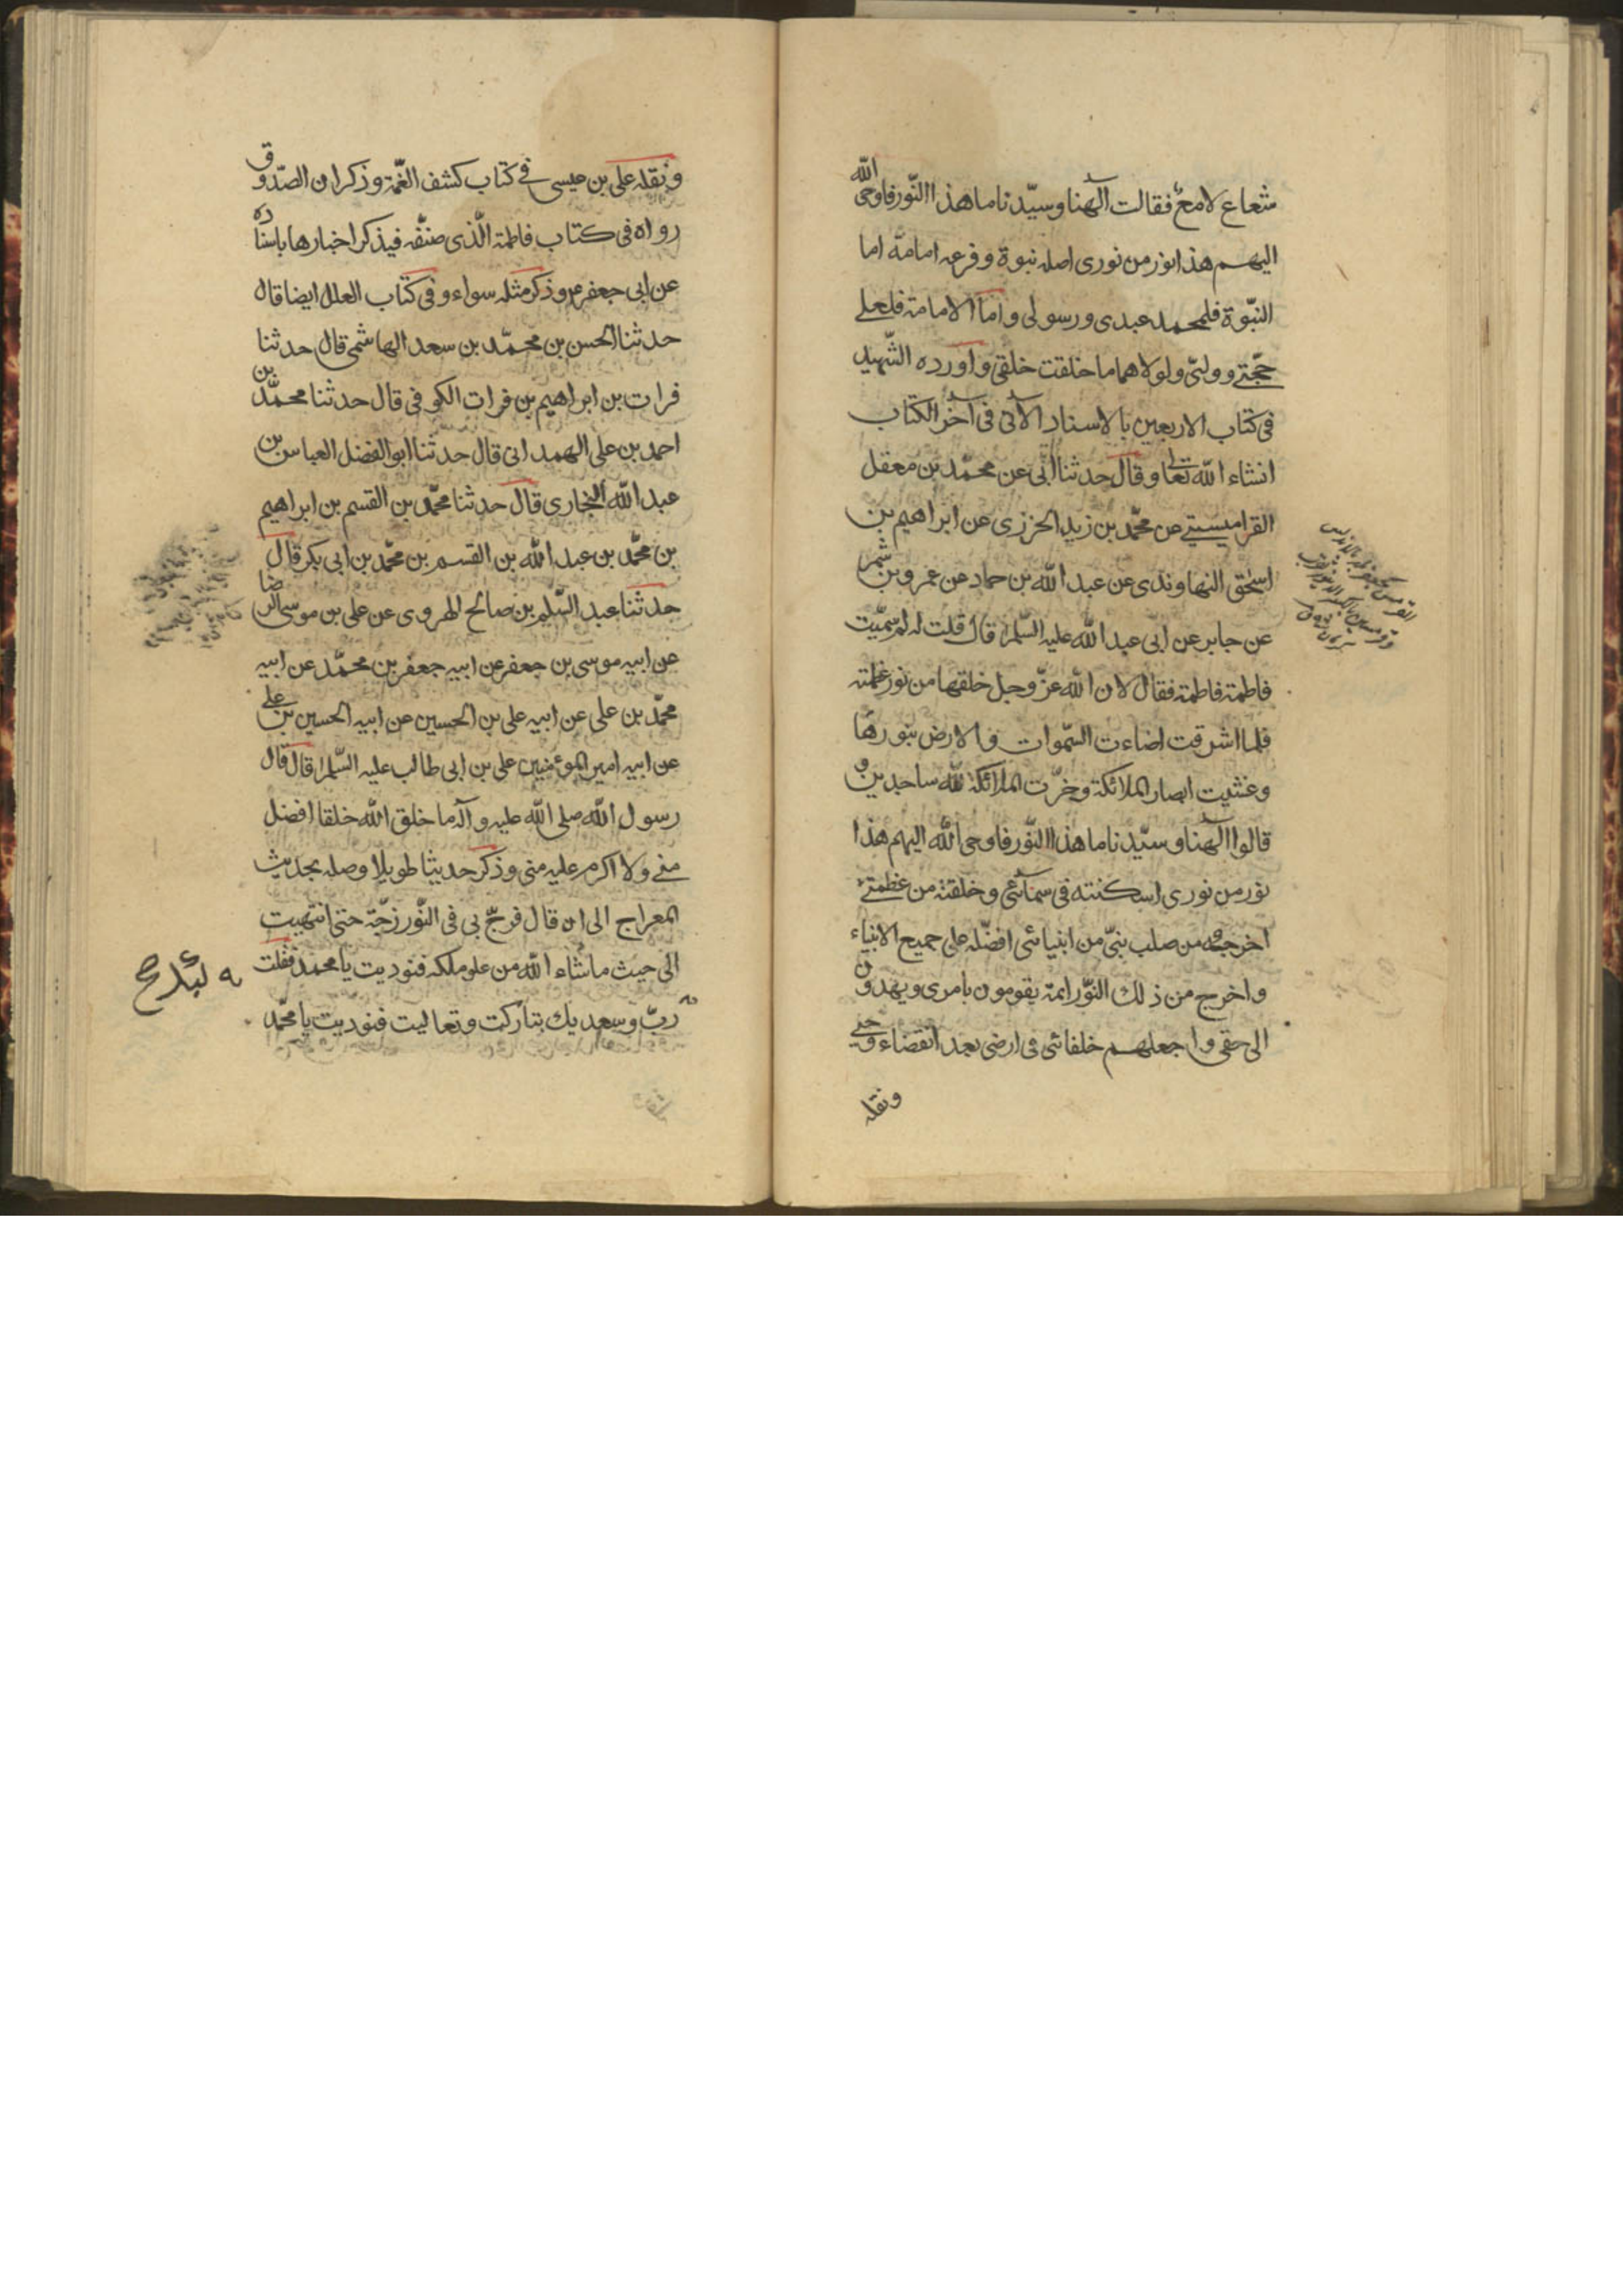 شعاع لامع فقالت الٓهنا وسيّدنا ما هذا النّور فاوحى الله
اليهم هذا نور من نورى اصله نبوة وفرعه امامة اما
النبّوة فلمحمد عبدى ورسولى واما الامامة فلعلى
حجّتى ووليّى ولولاهما ما خلقت خلقى واورده الشّهيد
فى كتاب الاربعين بالاسناد الآتى فى آخر الكتاب
انشاء الله تعالى وقال حدثنا ابى عن محمّد بن معقل
القراميسينى عن محمّد بن زيد الجزرى عن ابراهيم بن
اسحق النهاوندى عن عبد الله بن حماد عن عمرو بن شمر
عن جابر عن ابى عبد الله عليه السّلم قال قلت له لم سمّيت
فاطمة فاطمة فقال لان الله عزّ وجل خلقها من نور عظمته
فلما اشرقت اضاءت السّموات والارض بنورها
وغشيت ابصار الملائكة وخرّت الملائكة لله ساجدين و
قالوا الٓهنا وسيّدنا ما هذا النّور فاوحى الله اليهم هذا
نور من نورى اسكنته فى سمآئى وخلقته من عظمتى
اخرجه من صلب نبىّ من انبيائى افضّله على جميع الانبياء
واخرج من ذلك النّور ائمة يقومون بامرى ويهدون
الى حقى واجعلهم خلفائى فى ارضى بعد انقضاء وحيى
ونقله
ونقله على بن عيسى فى كتاب كشف الغمّة وذكر ان الصّدوق
رواه فى كتاب فاطمة الّذى صنّفه فيذكر اخبارها باسناده
عن ابى جعفر ع وذكر مثله سواء وفى كتاب العلل ايضا قال
حدثنا الحسن بن محمّد بن سعد الهاشمى قال حدثنا
فرات بن ابراهيم بن فرات الكوفى قال حدثنا محمّد بن
احمد بن على الهمدانى قال حدثنا ابو الفضل العباس بن
عبد الله البخارى قال حدثنا محمّد بن القسم بن ابراهيم
بن محمّد بن عبد الله بن القسم بن محمّد بن ابى بكر قال
حدثنا عبد السّلم بن صالح الهروى عن على بن موسى الرضا
عن ابيه موسى بن جعفر عن ابيه جعفر بن محمّد عن ابيه
محمّد بن على عن ابيه على بن الحسين عن ابيه الحسين بن على
عن ابيه امير الموءمنين على بن ابى طالب عليه السّلم قال قال
رسول الله صلى الله عليه وآله ما خلق الله خلقا افضل
منى ولا اكرم عليه منى وذكر حديثا طويلا وصله بحديث
المعراج الى ان قال فزجّ بى فى النّور زجّة حتى انتهيت
الى حيث ما شاء الله من علو ملكه فنوديت يا محمد فقلت
لبيك صح
ربّ وسعديك تباركت وتعاليت فنوديت يا محمّد